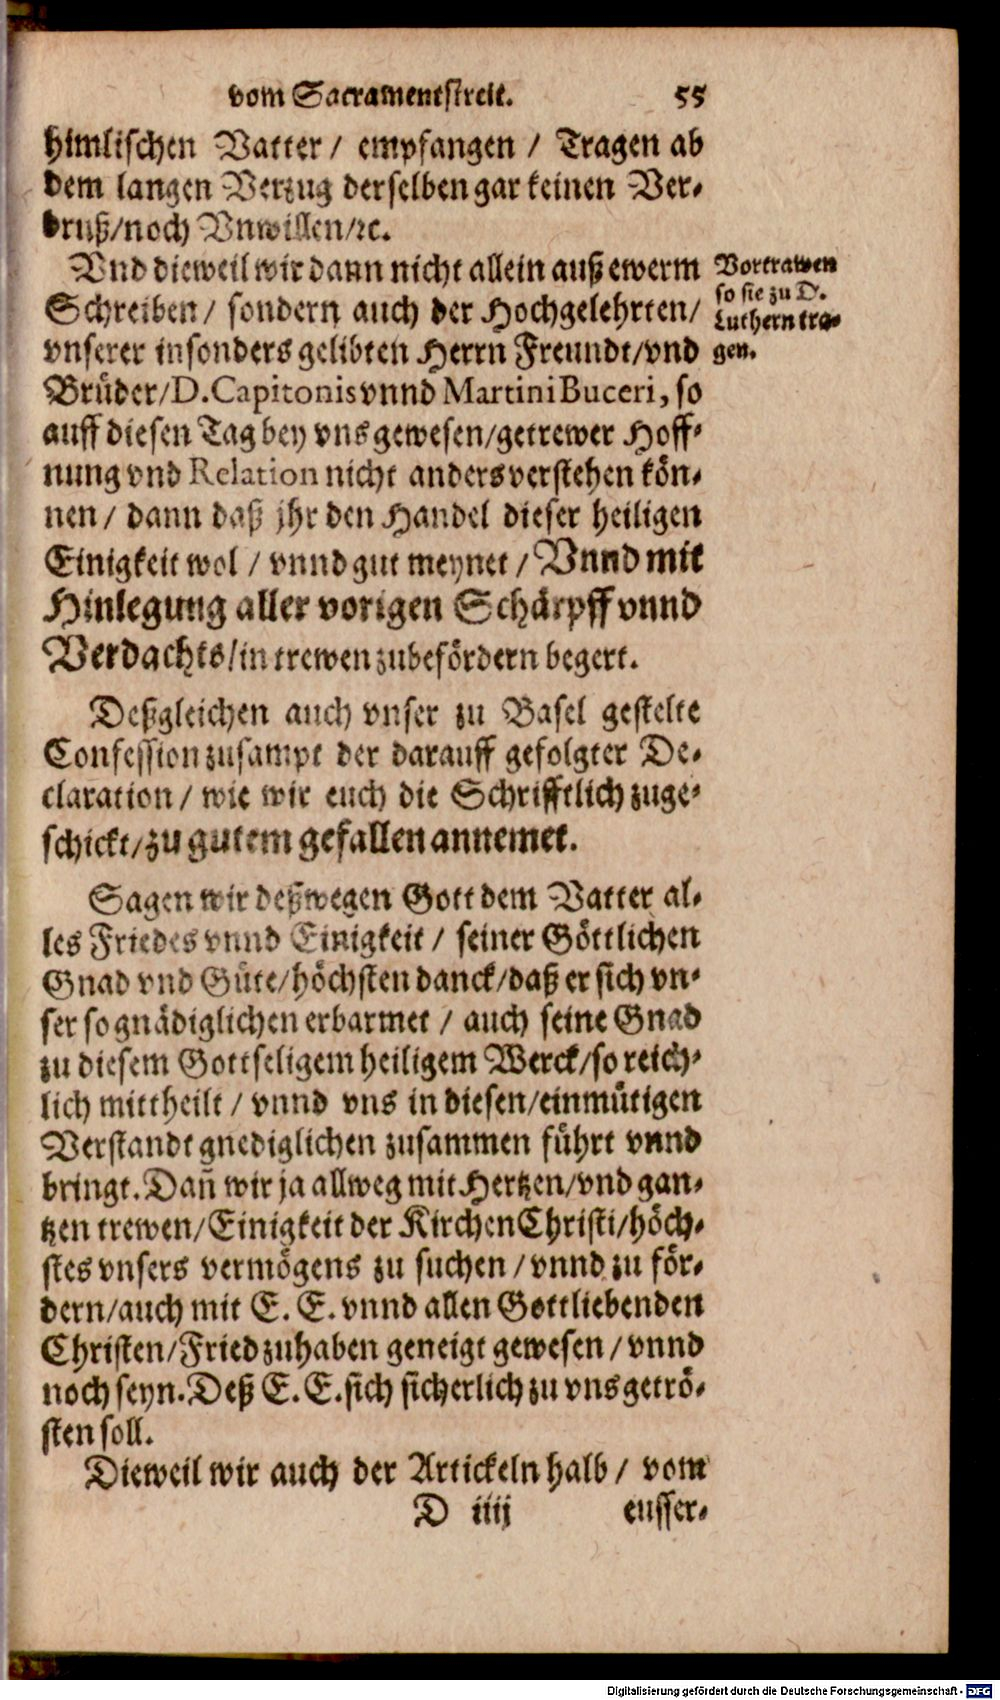 vom Sacramentstreit. 55
himlischen Vatter / empfangen / Tragen ab
dem langen Verzug derselben gar keinen Ver-
druß/noch Vnwillen/ꝛc.
Vnd dieweil wir dann nicht allein auß ewerm
Schreiben / sondern auch der Hochgelehrten/
vnserer insonders gelibten Herrn Freundt/vnd
Brüder/D. Capitonis vnnd Martini Buceri, so
auff diesen Tag bey vns gewesen/getrewer Hoff-
nung vnd Relation nicht anders verstehen kön-
nen / dann daß jhr den Handel dieser heiligen
Einigkeit wol / vnnd gut meynet / Vnnd mit
Hinlegung aller vorigen Schärpff vnnd
Verdachts/in trewen zubefördern begert.
Vortrawen
so sie zu D.
Luthern tra-
gen.
Deßgleichen auch vnser zu Basel gestelte
Confession zusampt der darauff gefolgter De-
claration / wie wir euch die Schrifftlich zuge-
schickt/zu gutem gefallen annemet.
Sagen wir deßwegen Gott dem Vatter al-
les Friedes vnnd Einigkeit / seiner Göttlichen
Gnad vnd Güte/höchsten danck/daß er sich vn-
ser so gnädiglichen erbarmet / auch seine Gnad
zu diesem Gottseligem heiligem Werck/so reich-
lich mittheilt / vnnd vns in diesen/einmütigen
Verstandt gnediglichen zusammen führt vnnd
bringt. Dañ wir ja allweg mit Hertzen/vnd gan-
tzen trewen/Einigkeit der Kirchen Christi/höch-
stes vnsers vermögens zu suchen / vnnd zu för-
dern/auch mit E. E. vnnd allen Gottliebenden
Christen/Fried zuhaben geneigt gewesen / vnnd
noch seyn. Deß E. E. sich sicherlich zu vns getrö-
sten soll.
Dieweil wir auch der Artickeln halb / vom
D iiij eusser-
Digitalisierung gefördert durch die Deutsche Forschungsgemeinschaft - DFG